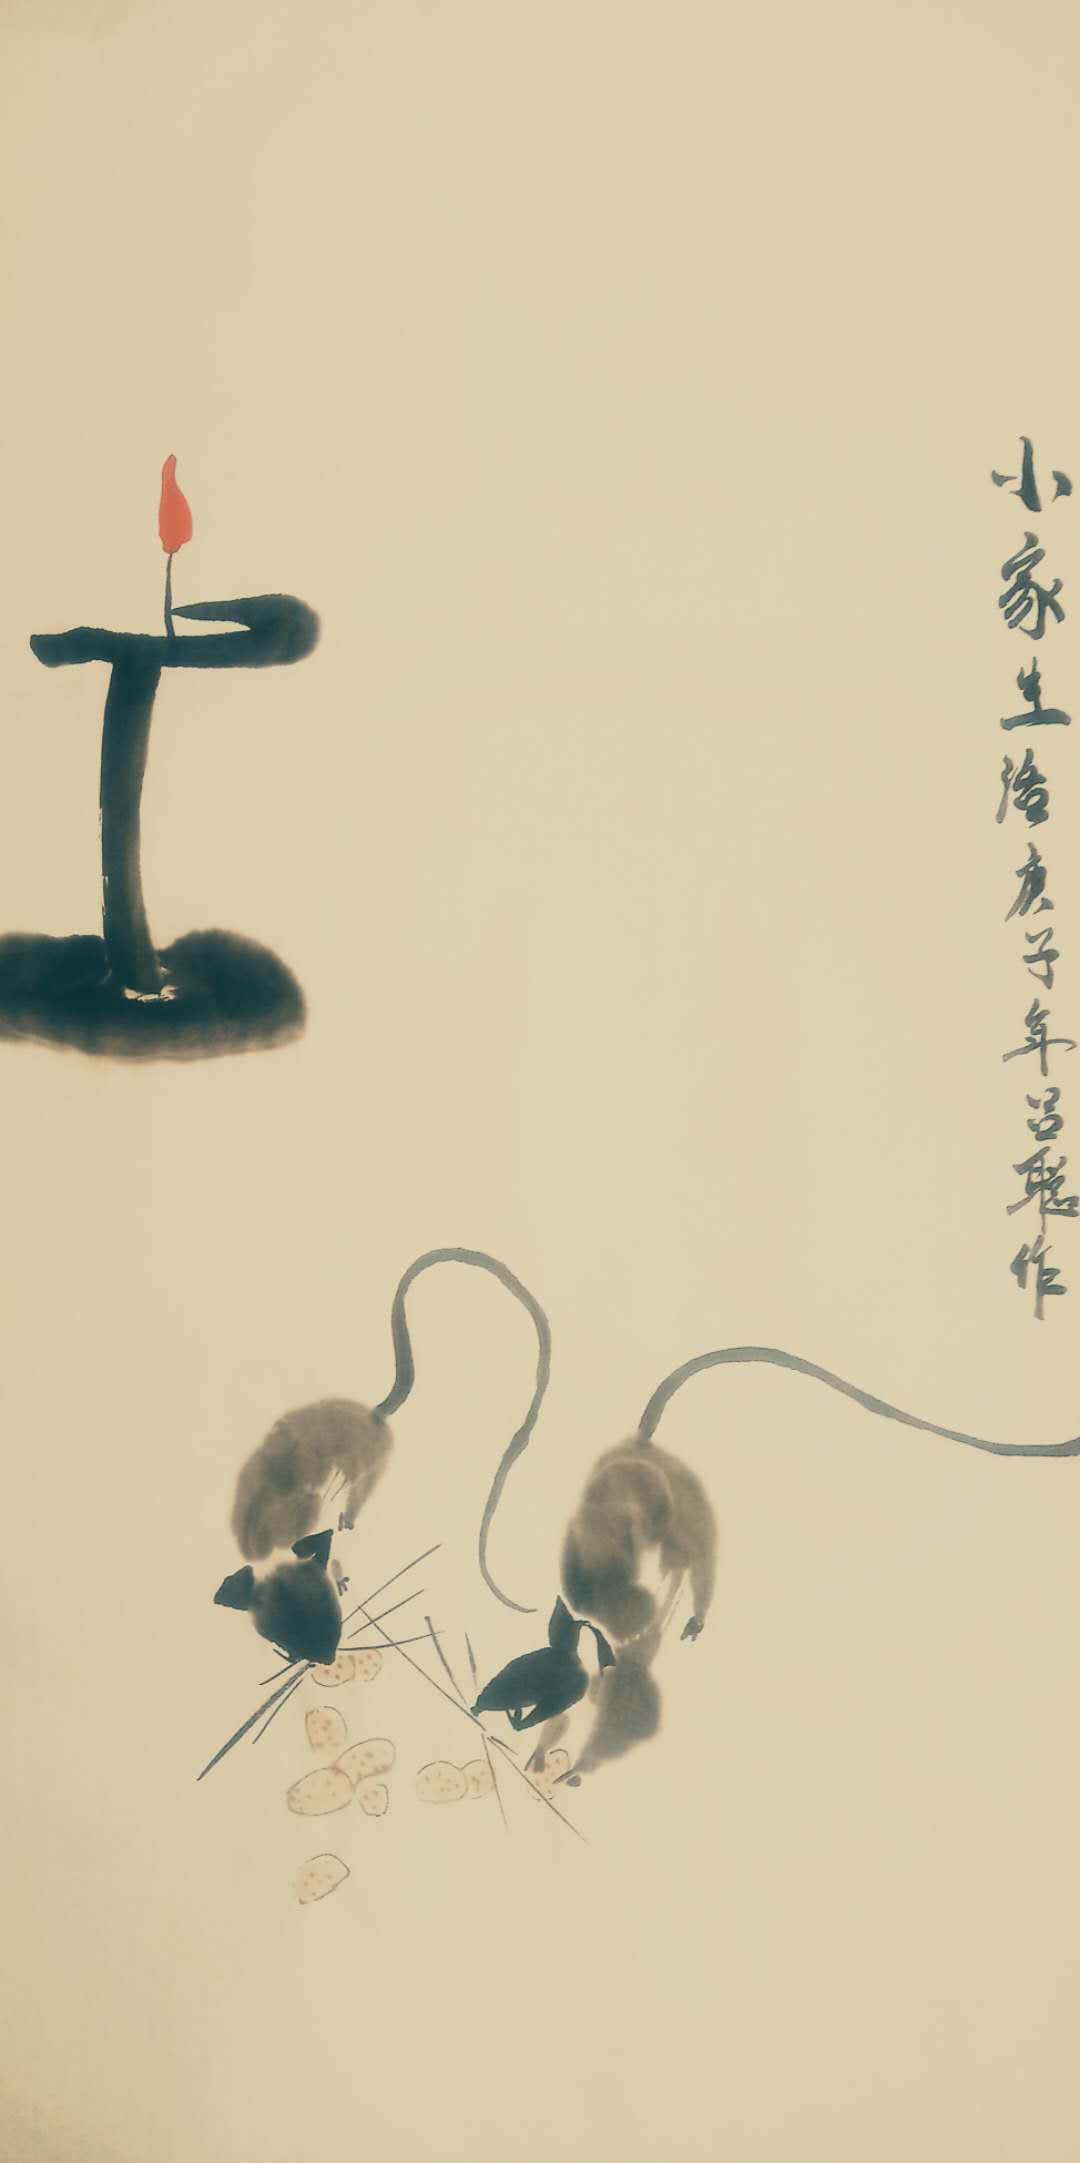 小家生活庚子年吕聪作